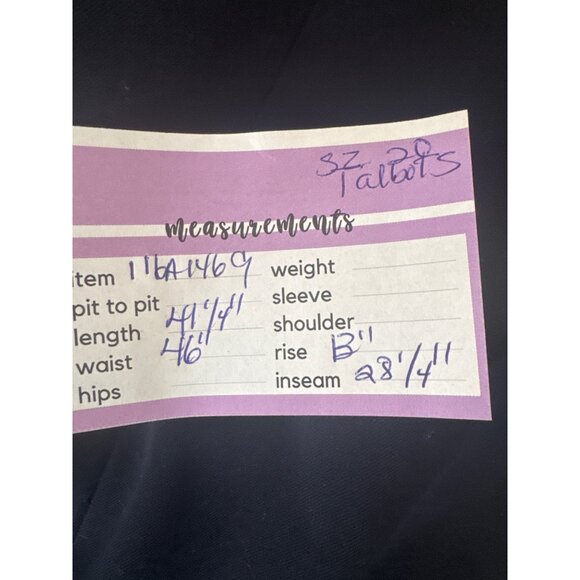 SZ. 20
Talbots
measurements
item 116A1469 weight
pit to pit
sleeve
length 41 1/4" shoulder
waist 46" rise 13"
hips inseam 28 1/4"